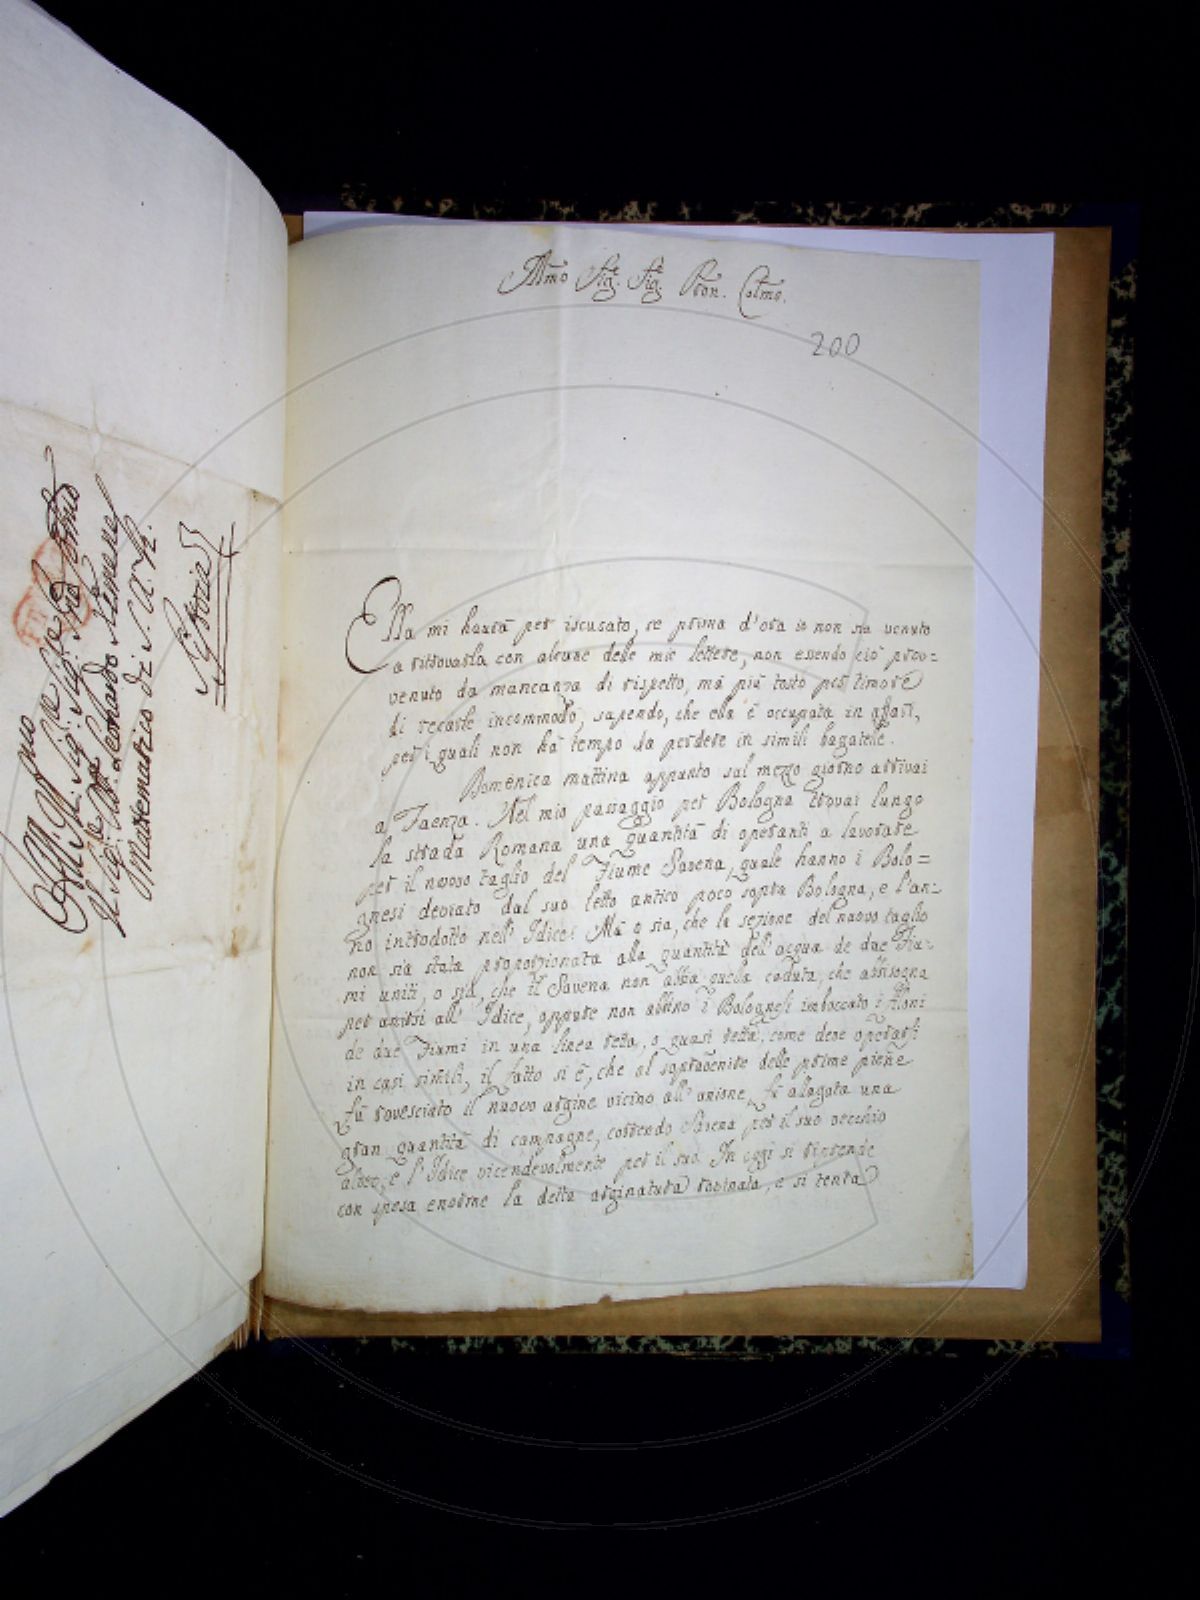 All' Illmo
Il Sig.r Sig.r Pne Colmo
Il Sig.r Leonardo Ximenes
Matematico di S. M. I.
Amo Sig.re Sig.re Pron. Colmo.
200
Ella mi haurà per iscusato, se prima d'ora io non sia venuto
a ritrovarla con alcune delle mie lettere, non essendo ciò prou=
venuto da mancanza di rispetto, mà più tosto per timore
di recarle incommodo, sapendo, che ella è occupata in affari,
per i quali non hà tempo da perdere in simili bagatelle.
Domenica mattina appunto sul mezzo giorno arrivai
a Faenza. Nel mio passaggio per Bologna trovai lungo
la strada Romana una quantità di operanti a lavorare
per il nuovo taglio del Fiume Savena, quale hanno i Bolo=
gnesi deviato dal suo letto antico poco sopra Bologna, e l'an-
no introdotto nell' Idice. Mà o sia, che la sezione del nuovo taglio
non sia stata proporzionata alla quantità dell' acqua de due Fiu-
mi uniti, o sia, che il Savena non abbia quella caduta, che abbisogna
per unirsi all' Idice, oppure non abbino i Bolognesi imboccato i
de due Fiumi in una linea retta, o quasi retta, come deve operarsi
in casi simili, il fatto si è, che al sopravenire delle prime piene
fù rovesciato il nuovo argine vicino all' unione, fù allagata una
gran quantità di campagne, correndo Savena per il suo vecchio
alveo, e l' Idice vicendevolmente per il suo. In oggi si riprende
con spesa enorme la detta arginatura rovinata, e si tenta